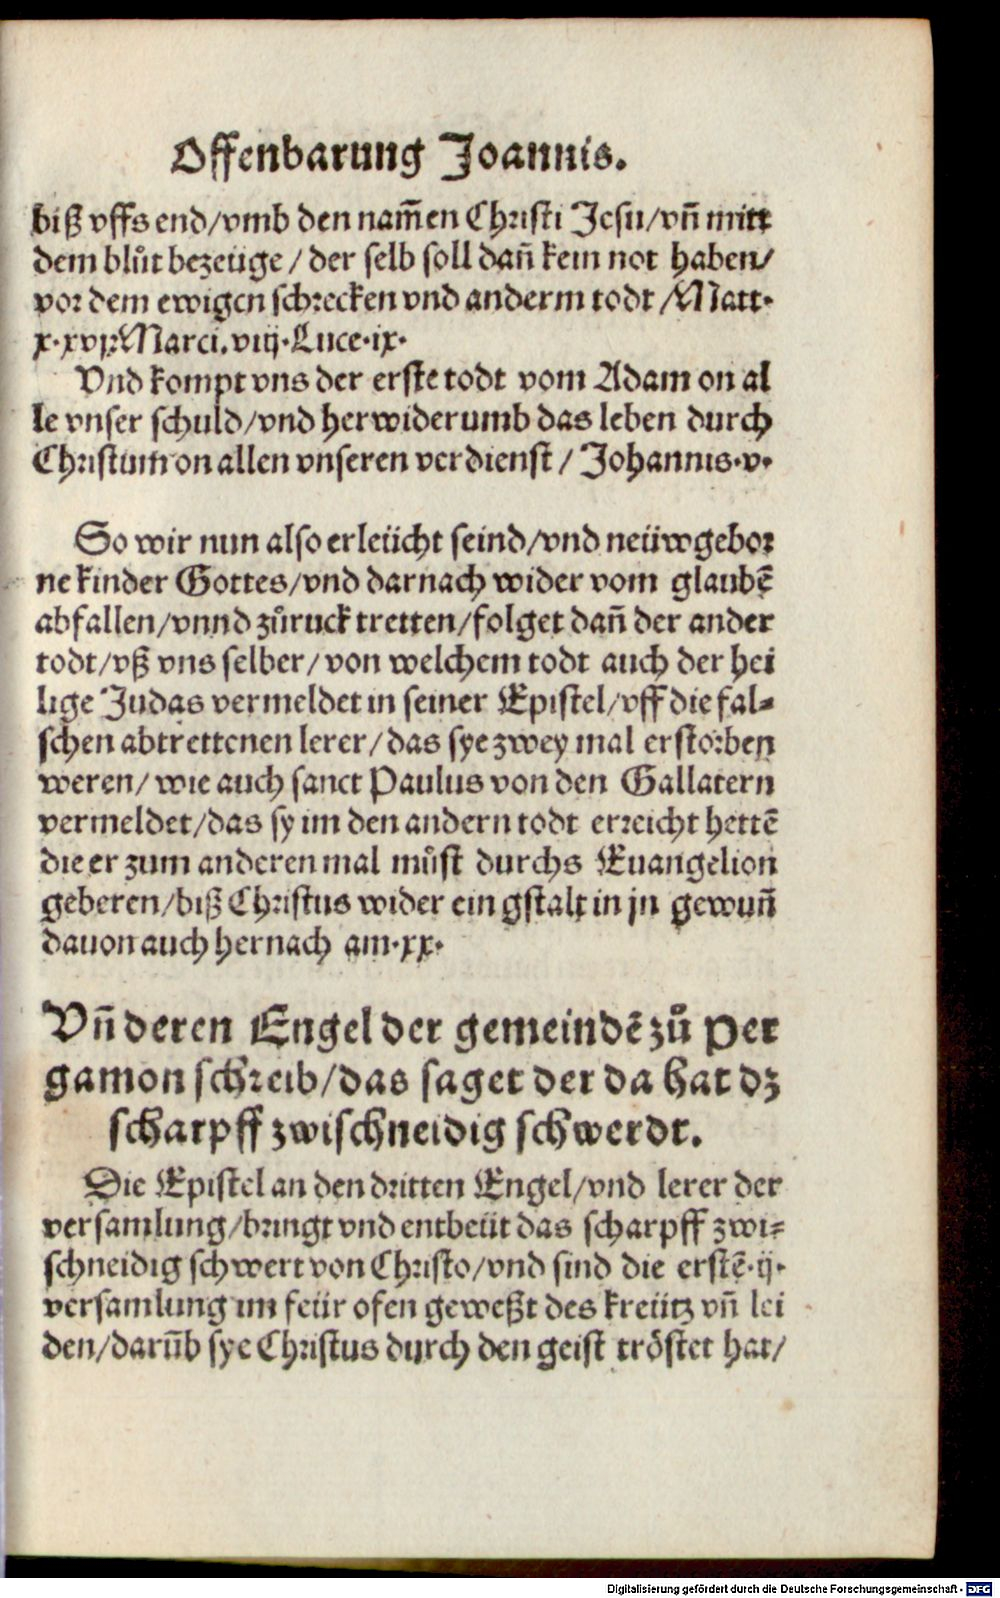 Offenbarung Joannis.
biß vffs end/vmb den nam̃en Christi Jesu/vñ mitt
dem blůt bezeüge/der selb soll dañ kein not haben/
vor dem ewigen schrecken vnd anderm todt/Matt.
x.xvj. Marci.viij.Luce.ix.
Vnd kompt vns der erste todt vom Adam on al
le vnser schuld/vnd herwiderumb das leben durch
Christum on allen vnseren verdienst/Johannis.v.
So wir nun also erleücht seind/vnd neüwgebor
ne kinder Gottes/vnd darnach wider vom glaubẽ
abfallen/vnnd zůruck tretten/folget dañ der ander
todt/vß vns selber/von welchem todt auch der hei
lige Judas vermeldet in seiner Epistel/vff die fal⸗
schen abtrettenen lerer/das sye zwey mal erstorben
weren/wie auch sanct Paulus von den Gallatern
vermeldet/das sy im den andern todt erreicht hettẽ
die er zum anderen mal můst durchs Euangelion
geberen/biß Christus wider ein gstalt in jn gewuñ
dauon auch hernach am.xx.
Vñ deren Engel der gemeindẽ zů Per
gamon schreib/das saget der da hat dz
scharpff zwischneidig schwerdt.
Die Epistel an den dritten Engel/vnd lerer der
versamlung/bringt vnd entbeüt das scharpff zwi⸗
schneidig schwert von Christo/vnd sind die erstẽ.ij.
versamlung im feür ofen geweßt des kreütz vñ lei
den/darũb sye Christus durch den geist tröstet hat/
Digitalisierung gefördert durch die Deutsche Forschungsgemeinschaft - DFG